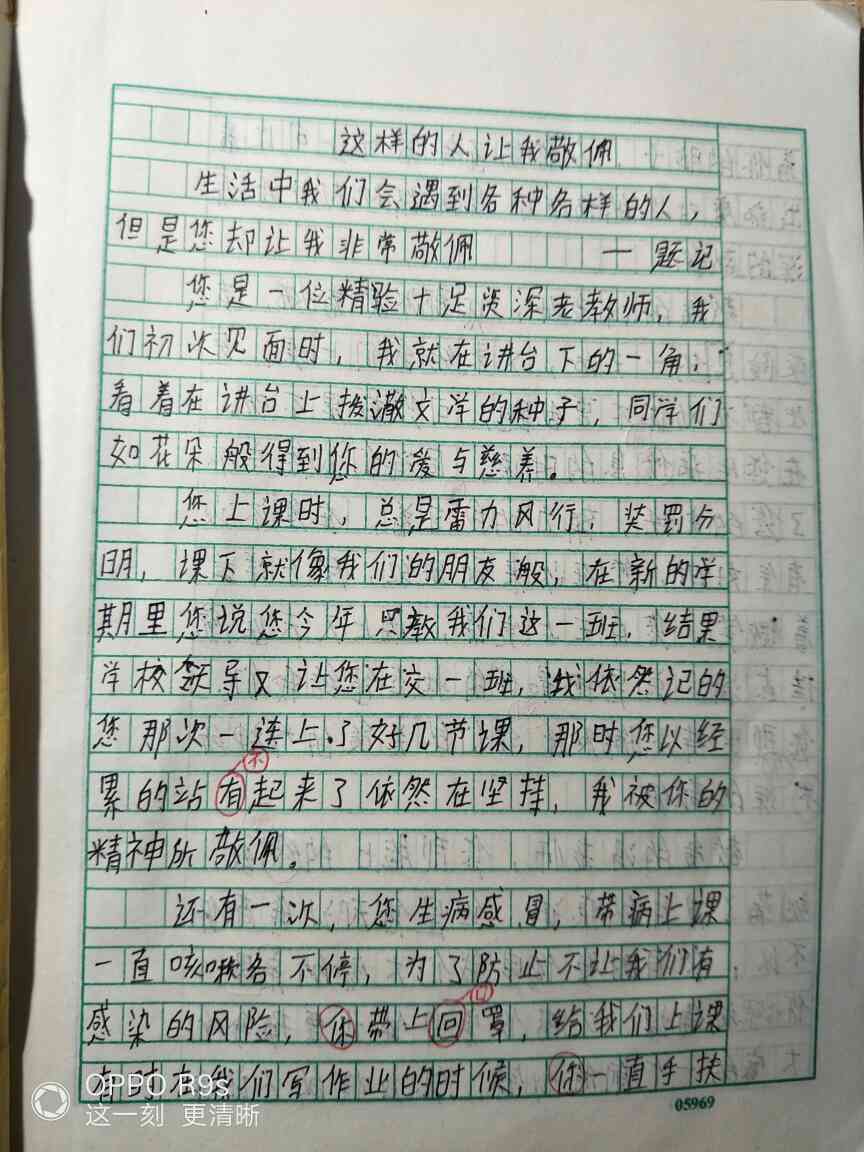 这样的人让我敬佩
生活中我们会遇到各种各样的人，
但是您却让我非常敬佩 一题记
您是一位精验十足资深老教师，我
们初次见面时，我就在讲台下的一角，
看着在讲台上拨澈文学的种子，同学们
如花朵般得到您的爱与慈养。
您上课时，总是雷力风行，奖罚分
明，课下就像我们的朋友般，在新的学
期里您说您今年只教我们这一班，结果
学校领导又让您在交一班，我依然记的
您那次一连上了好几节课，那时您以经
不
累的站有起来了依然在坚持，我被你的
精神所敬佩。
还有一次，您生病感冒，带病上课
一直咳嗽各不停，为了防止不让我们有
口
感染的风险，你带上回罩，给我们上课
有时在我们写作业的时候，你一直手扶
OPPO R9s
这一刻 更清晰
05969